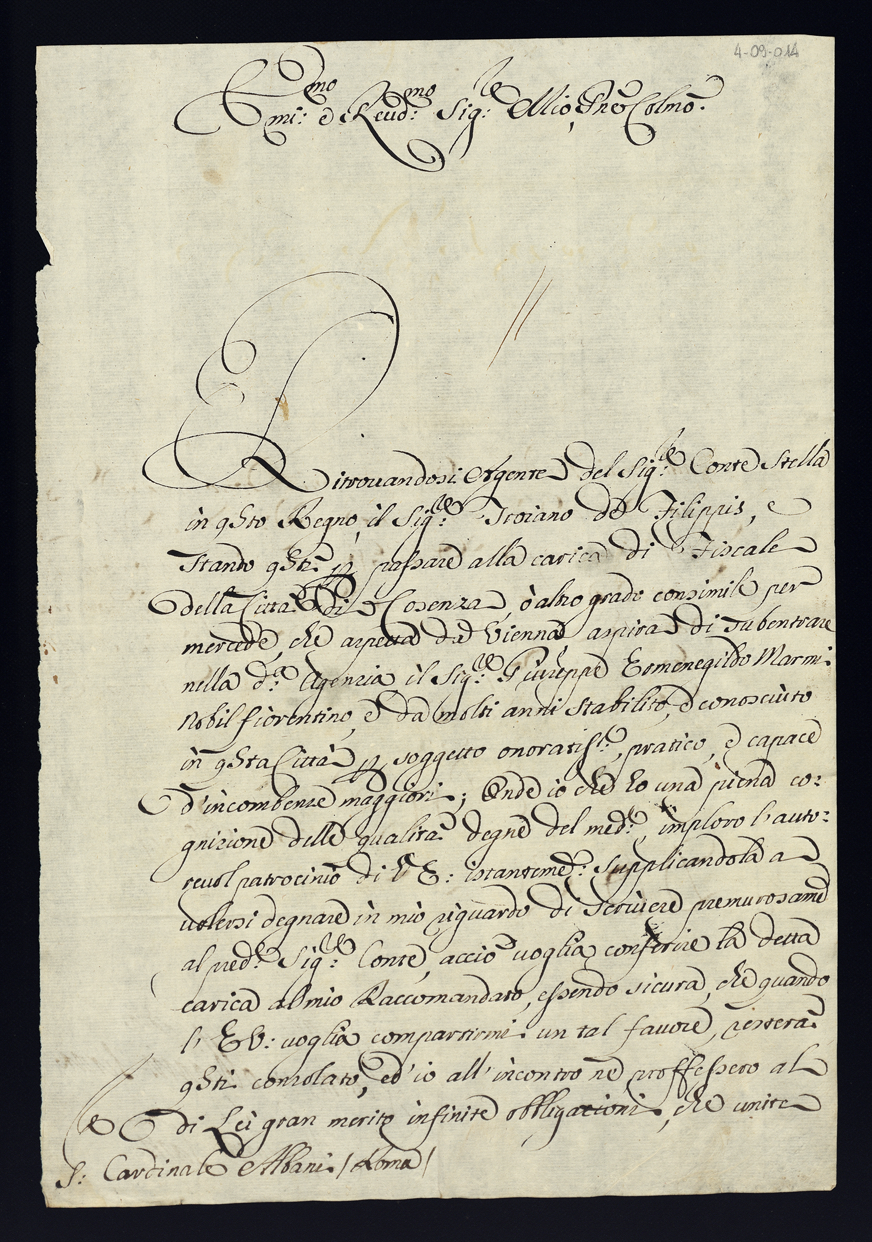 4-09-014
Emi:mo e Reud:mo Sig:re Mio, Pne Colmo:
Ritrouandosi Agente del Sig:re Conte Stella
in qsto Regno, il Sig:re Troiano de Filippis, e
stando qsti: p passare alla carica di Fiscale
della Città di Cosenza, ò altro grado consimile per
mercede, che aspetta da Vienna aspira di subentrare
nella d:a Agenzia il Sig:re Giuseppe Ermenegildo Marmi:
Nobil fiorentino, e da molti anni stabilito, e conosciuto
in qsta Città p soggetto onoratiss:o, pratico, e capace
d'incombenze maggiori; Onde io che hò una piena co:
gnizione delle qualità degne del med:o, imploro l'auto:
reuol patrocinio di V E: istanteme:e supplicandola a
uolersi degnare in mio riguardo di scriuere premurosame
al pred:o Sig:re Conte, acciò uoglia conferire la detta
carica al mio Raccomandato, essendo sicura, che quando
l'E V: uoglia compartirmi un tal fauore, resterà
qsti consolato, ed' io all' incontro ne proffessero al
di Lei gran merito infinite obbligazioni, che unite
S: Cardinale Albani (Roma)